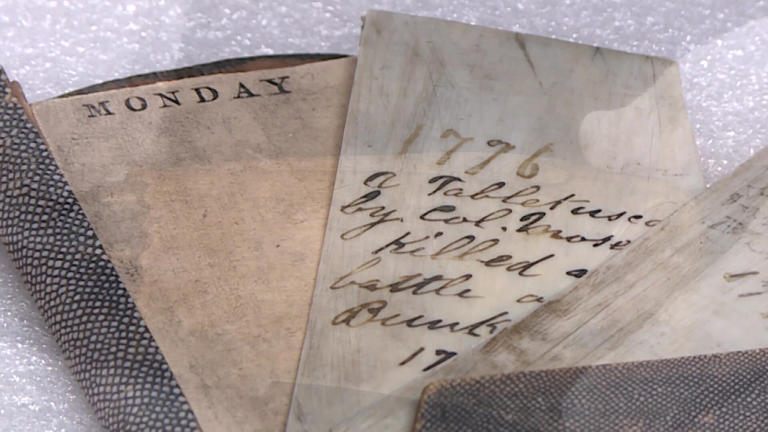 MONDAY
1776
a Tablet used
by Col.
Killed a
battle o
Bunk
17